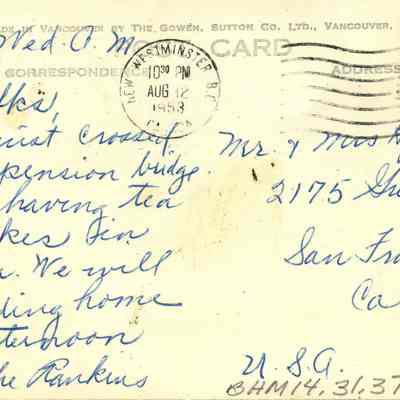 DE IN VANCOUVER BY THE GOWEN, SUTTON CO. LTD., VANCOUVER,
CARD
CORRESPONDENCE
ADDRESS
Wed. A.M.
NEW WESTMINSTER B.C.
10 30 PM
AUG 12
1953
lks,
just crossed
pension bridge
having tea
kes in
We will
ding home
ternoon
he Rankins
Mr. & Mrs
2175
San Fra
Ca
U.S.A.
BHM14.31.37